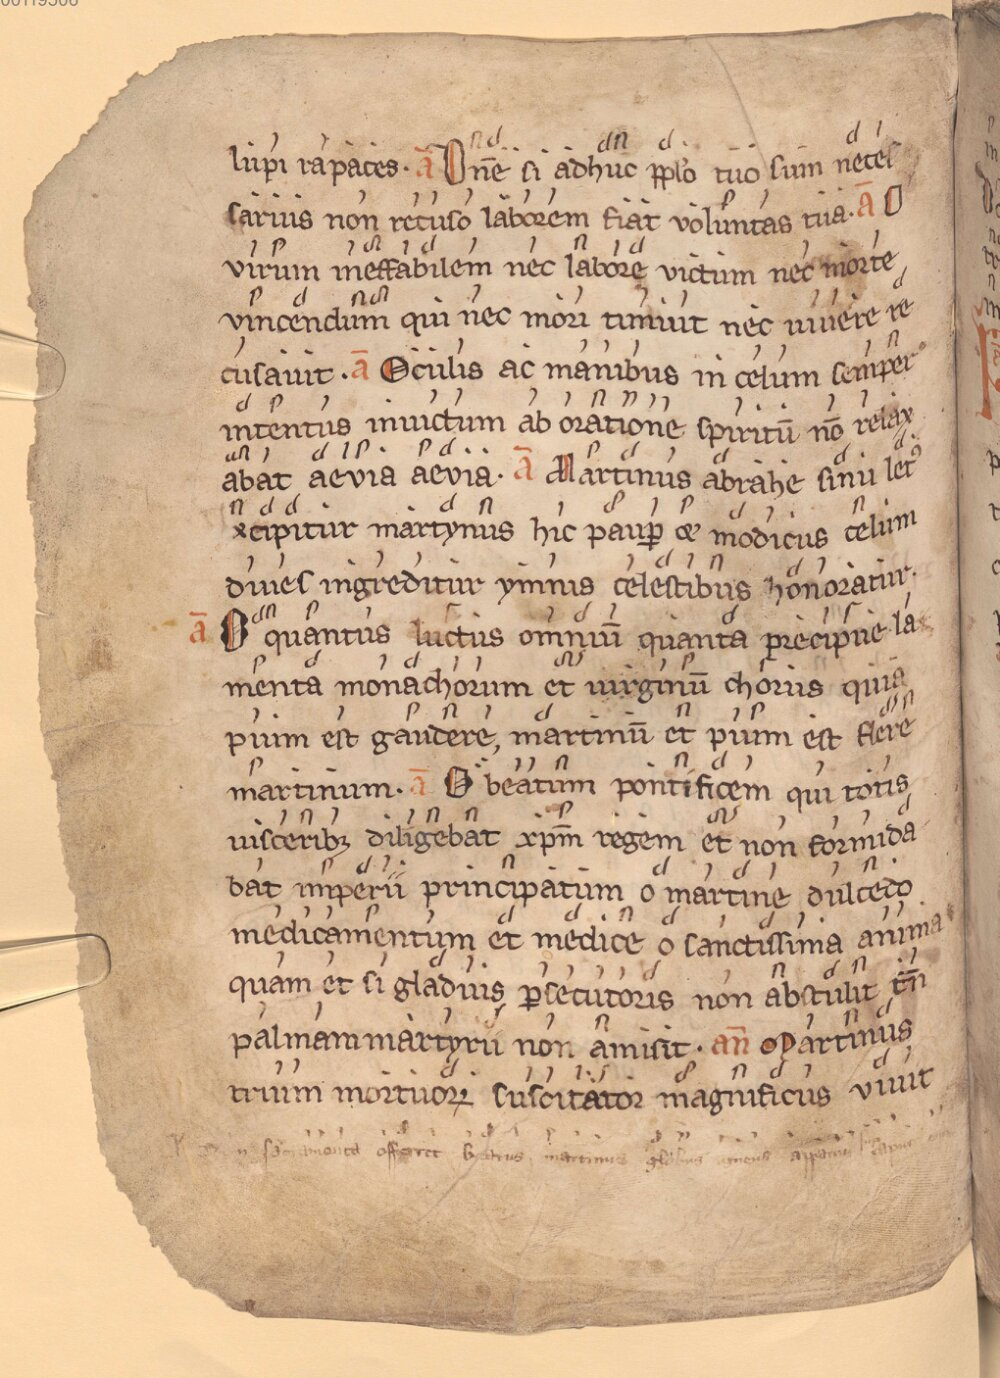 lupi rapaces. ā Dn̄e si adhuc pplo tuo sum necel
sarius non recuso laborem fiat voluntas tua. ā O
virum ineffabilem nec labore victum nec morte
vincendum qui nec mori timuit nec uiuere re
cusauit. ā Oculis ac manibus in celum semper
intentus inuictum ab oratione spiritū nō relax
abat aevia aevia. ā Martinus abrahe sinu letꝰ
excipitur martynus hic paup̱ et modicus celum
diues ingreditur ymnis celestibus honoratur.
ā O quantus luctus omniū quanta precipue la
menta monachorum et uirginū chorus quia
pium est gaudere, martinū et pium est flere
martinum. ā O beatum pontificem qui totis
uisceribꝫ diligebat xp̄m regem et non formida
bat imperii principatum o martine dulcedo
medicamentum et medice o sanctissima anima
quam et si gladius ꝑsecutoris non abstulit tn̄
palmam martyrii non amisit. an̄ Martinus
trium mortuoꝝ suscitator magnificus viuit
sacramenta offeret beatus martinus globus igneus apparuit